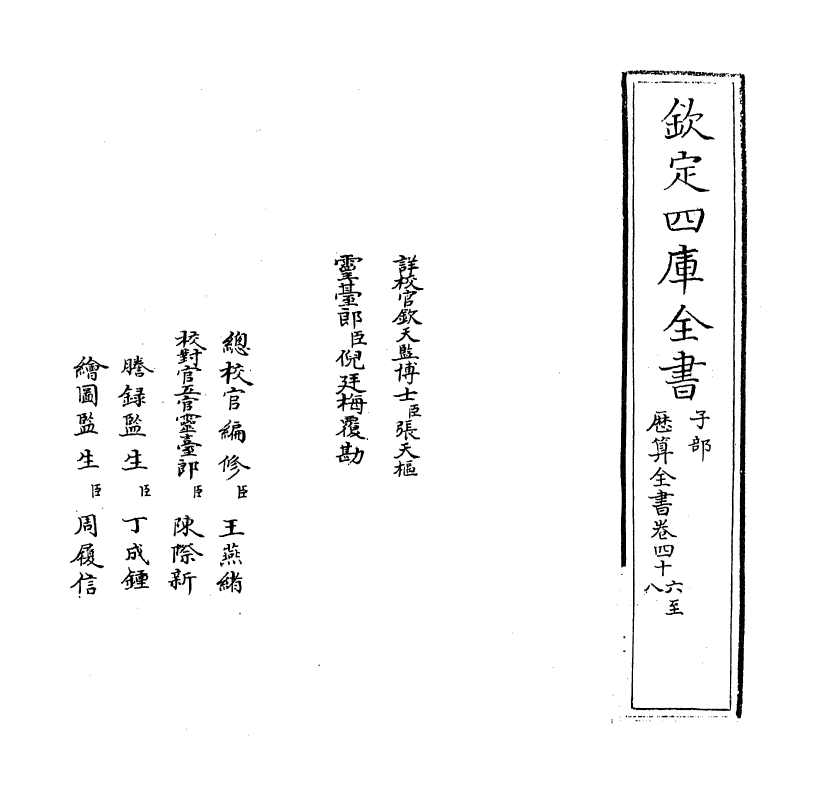 欽定四庫全書
子部
歷算全書卷四十六至
八
詳校官欽天監博士臣張天樞
靈臺郎臣倪廷梅覆勘
總校官編修臣王燕緒
校對官五官靈臺郎臣陳際新
謄録監生臣丁成鍾
繪圖監生臣周履信